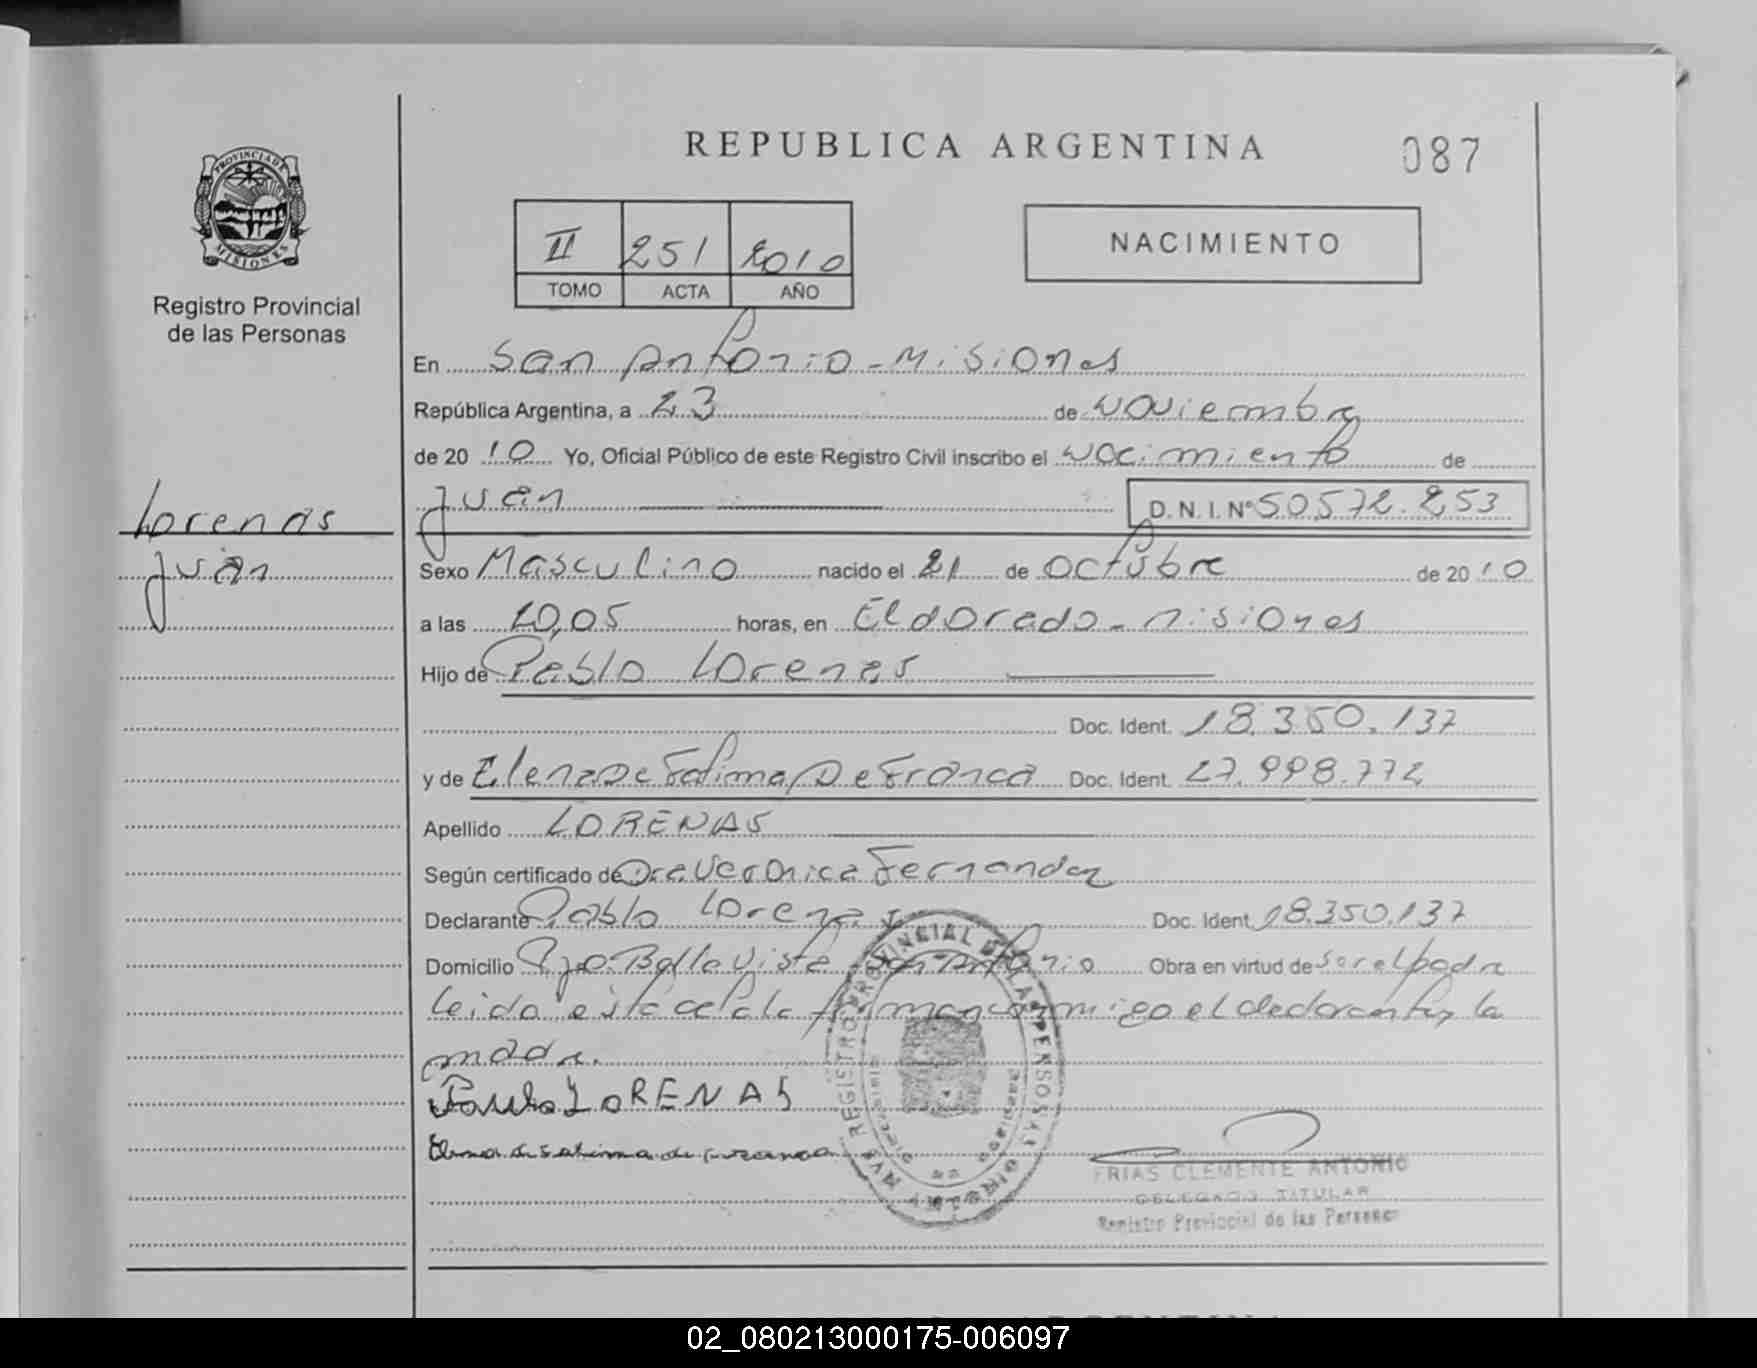 REPUBLICA ARGENTINA
087
PROVINCIA DE
MISIONES
Registro Provincial
de las Personas
II 251 2010
TOMO ACTA AÑO
NACIMIENTO
En San Antonio - Misiones
República Argentina, a 23 de Noviembre
de 20 10 Yo, Oficial Público de este Registro Civil inscribo el Nacimiento de
Juan D. N. I. Nº 50.572.253
Lorenas
Juan
Sexo Masculino nacido el 21 de octubre de 20 10
a las 10,05 horas, en Eldorado - Misiones
Hijo de Pablo Lorenas
Doc. Ident. 18.350.137
y de Elena De Fatima De Franca Doc. Ident. 27.998.772
Apellido LORENAS
Según certificado de Dra Veronica Fernandez
Declarante Pablo Lorenas Doc. Ident. 18.350.137
Domicilio Bella Vista San Antonio Obra en virtud de ser el padre
leida esta acta la firman conmigo el declarante y la
madre.
LORENAS
REGISTRO PROVINCIAL DE LAS PERSONAS
FRIAS CLEMENTE ANTONIO
DELEGADO TITULAR
Registro Provincial de las Personas
02_080213000175-006097